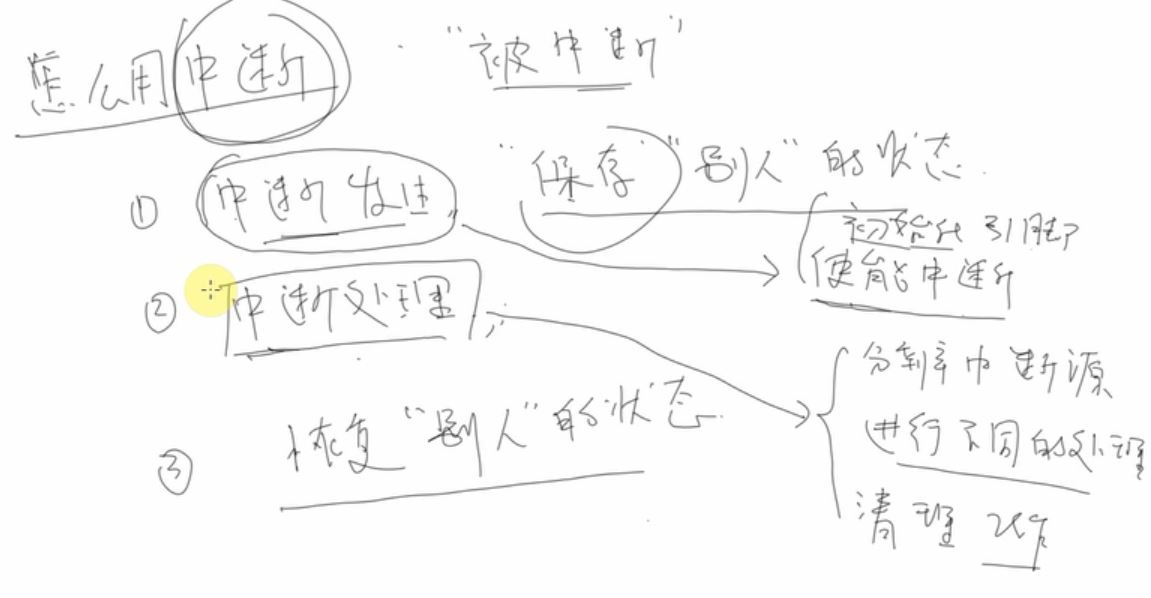 怎么用中断
"被中断"
"保存""别人"的状态
① 中断发生
初始化 引脚
使能中断
② 中断处理
分辨中断源
进行不同的处理
清理工作
③ 恢复"别人"的状态